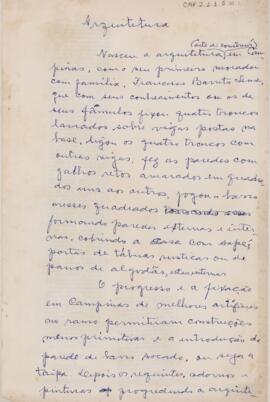 Arquitetura
(arte de construir)
Nasceu a arquitetura, em Cam-
pinas, com o seu primeiro morador
com família, Francisco Barreto Leme,
que com seus conhecimentos ou os de
seus fâmulos fixou quatro troncos
lavrados sobre vigas postas na
base, ligou os quatro troncos com
outras vigas, fez as paredes com
galhos retos amarrados em quadra
dos uns aos outros, jogou o barro
nesses quadrados
formando paredes externas e inter-
nas, cobrindo a casa com sapé,
portas de tábuas rusticas ou de
panos de algodão,
O progresso e a fixação
em Campinas de melhores artífices
no ramo permitiram construções
menos primitivas e a introdução da
parede de barro socado, ou seja a
taipa. Depois os requintes, adornos e
pinturas progredindo a arquite-